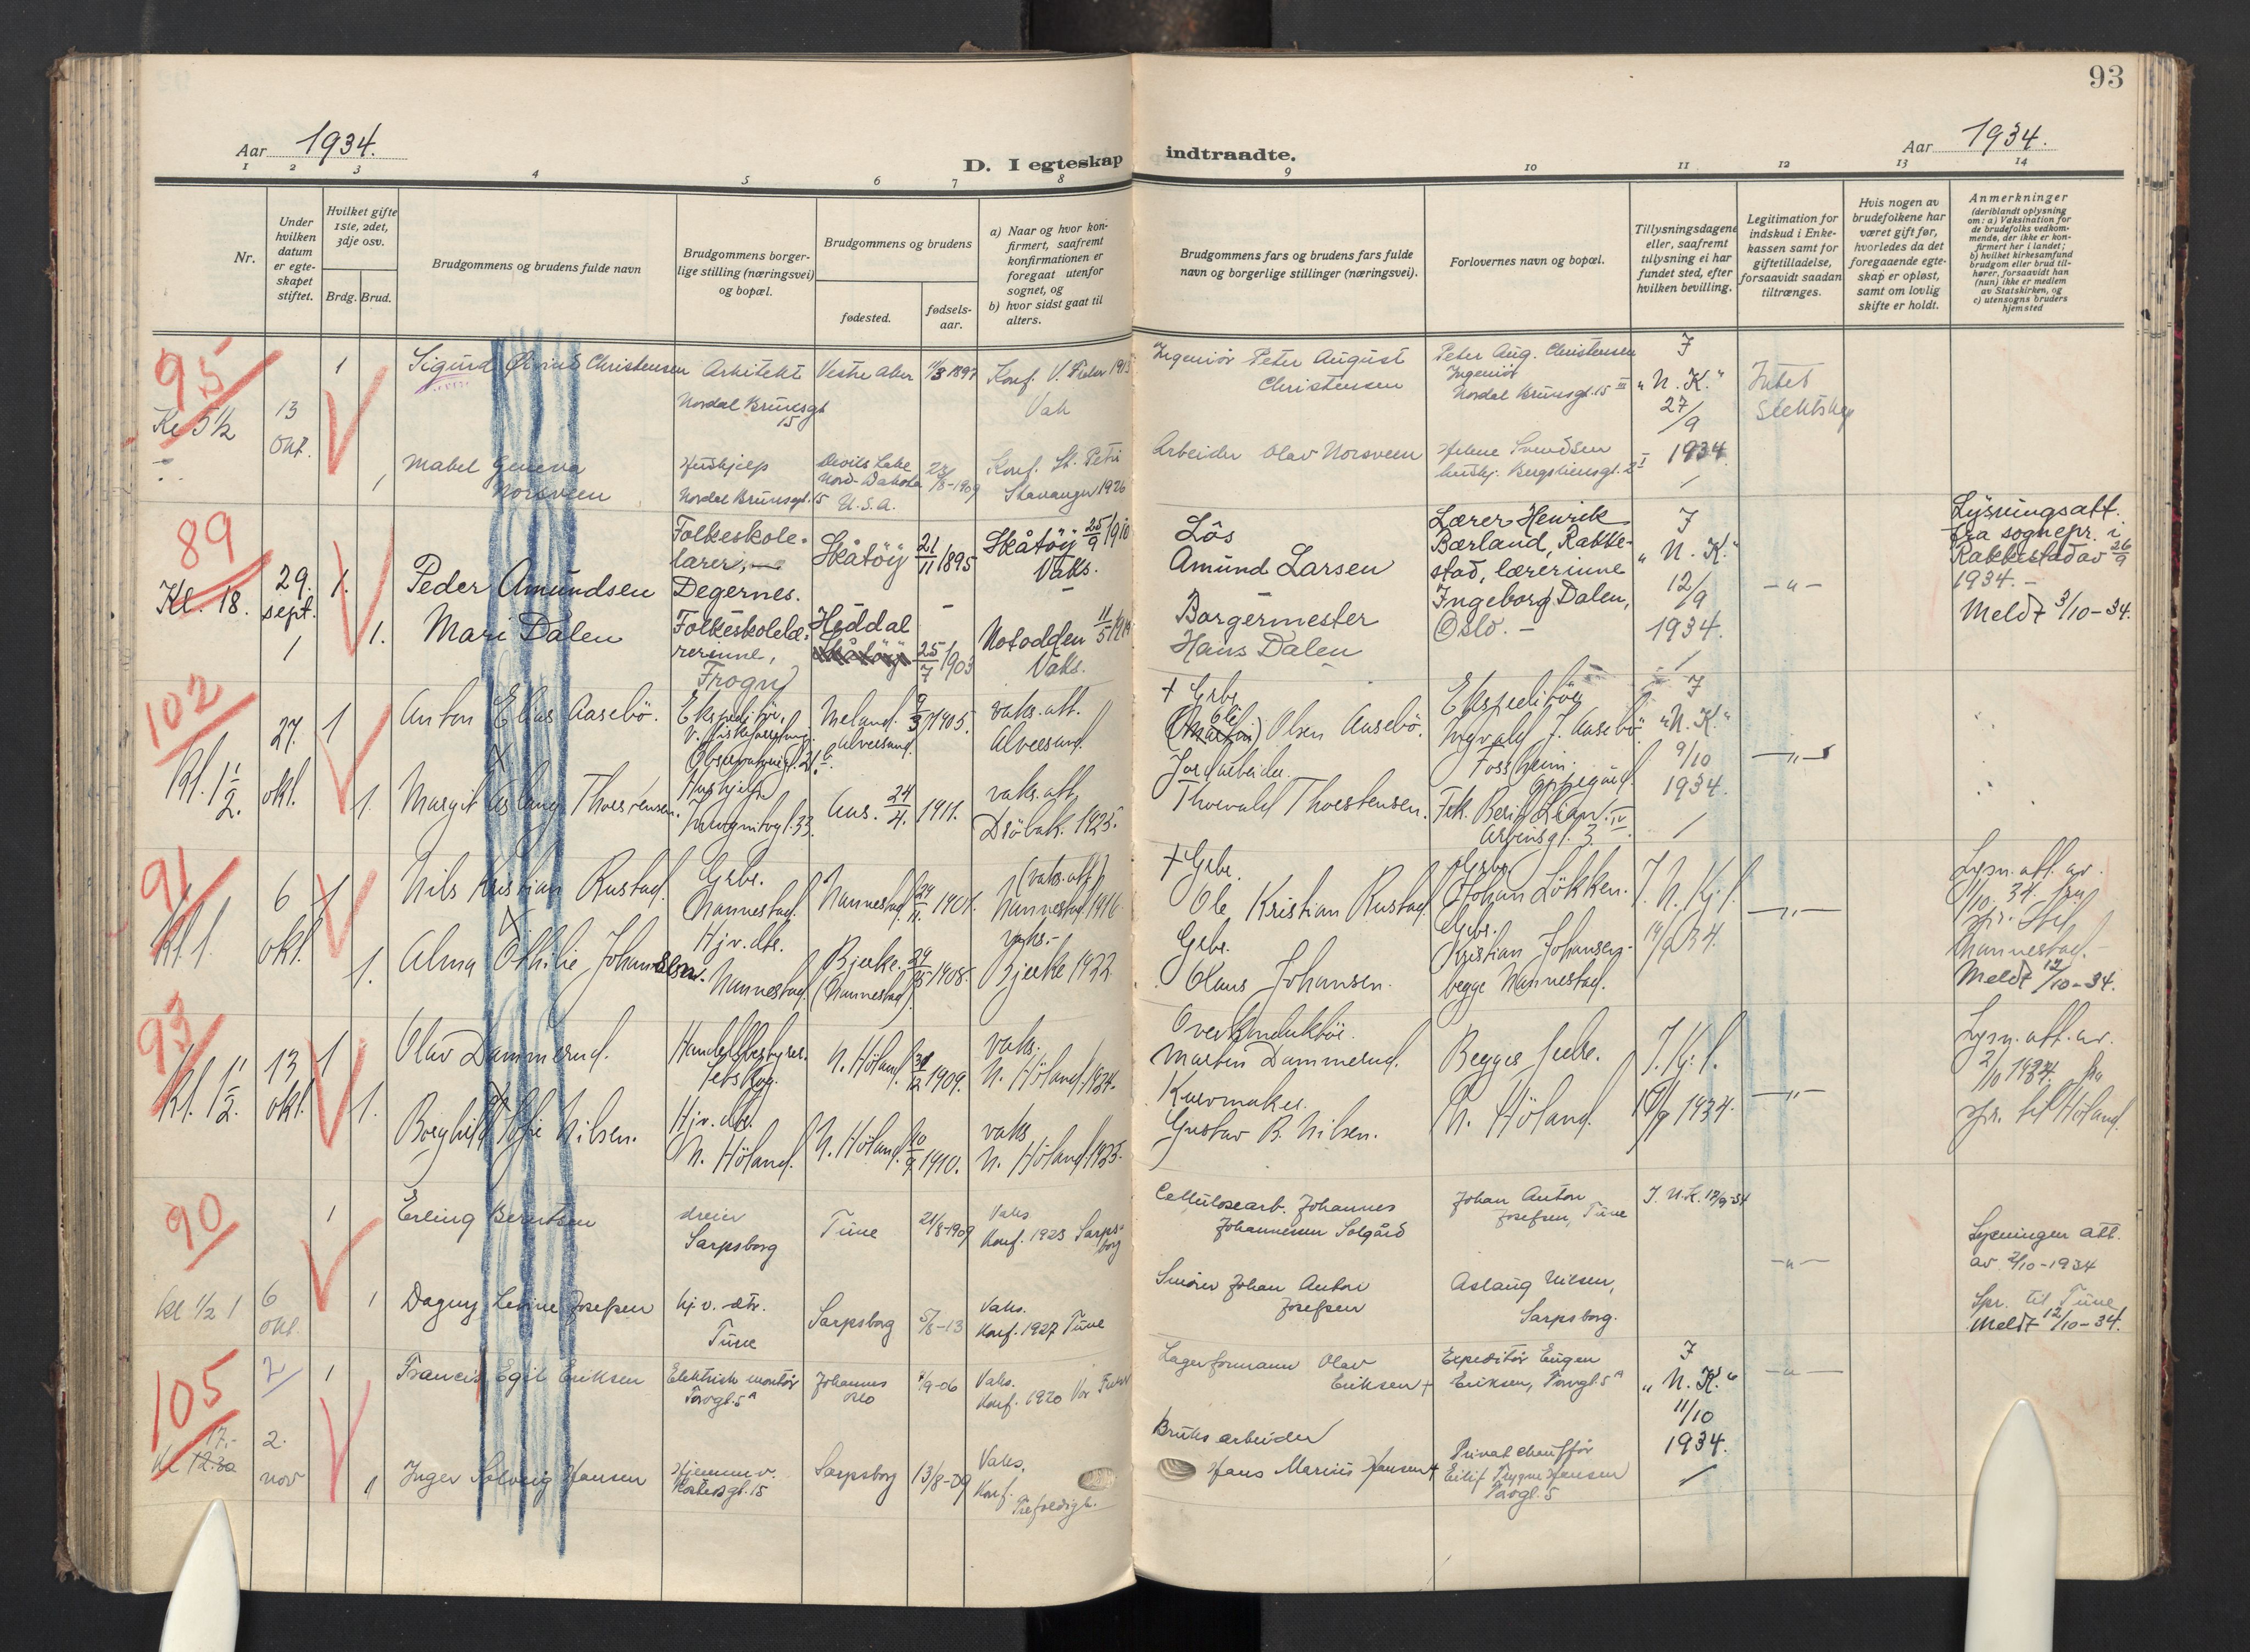 93
Aar 1934.
D. I egteskap indtraadte.
Aar 1934.
1 2 3 4 5 6 7 8 9 10 11 12 13 14
Nr.
Under hvilken datum er egteskapet stiftet.
Hvilket gifte 1ste, 2det, 3dje osv.
Brdg. Brud.
Brudgommens og brudens fulde navn
Brudgommens borgerlige stilling (næringsvei) og bopæl.
Brudgommens og brudens
fødested.
fødselsaar.
a) Naar og hvor konfirmert, saafremt konfirmationen er foregaat utenfor sognet, og
b) hvor sidst gaat til alters.
Brudgommens fars og brudens fars fulde navn og borgerlige stillinger (næringsvei).
Forlovernes navn og bopæl.
Tillysningsdagene eller, saafremt tillysning ei har fundet sted, efter hvilken bevilling.
Legitimation for indskud i Enkekassen samt for giftetilladelse, forsaavidt saadan tiltrænges.
Hvis nogen av brudefolkene har været gift før, hvorledes da det foregaaende egteskap er opløst, samt om lovlig skifte er holdt.
Anmerkninger
(deriblandt oplysning om: a) Vaksination for de brudefolks vedkommende, der ikke er konfirmert her i landet; b) hvilket kirkesamfund brudgom eller brud tilhører, forsaavidt han (hun) ikke er medlem av Statskirken, og c) utensogns bruders hjemsted
95
Kl 5 1/2
13 Okt.
1
Sigurd Øivind Christensen
Arkitekt
Nordal Brunsgt. 15
Vestre Aker
11/3 1897
Konf. V. Frelser 1913
Vak
Ingeniør Peter August Christensen
Peter Aug. Christensen
Ingeniør
Nordal Brunsgt. 15 III
I
"N. K."
27/9
1934
Intet
Slektskap
1
Mabel Geneva Norsveen
Hushjelp
Nordal Brunsgt. 15
Devils Lake
Nord-Dakota
U.S.A.
23/8-1909
Konf. St. Petri
Stavanger 1926
Arbeider Olav Norsveen
Helene Svendsen
hushj. Bergsliensgt. 2 I
89
Kl. 18.
29. sept.
1.
Peder Amundsen
Folkeskolelærer,
Degernes.
Skåtøy
21/11 1895
Skåtøy 25/9 1910
Vaks.
Los
Amund Larsen
Lærer Henrik
Bærland, Rakkestad, lærerinne
Ingeborg Dalen,
Oslo. -
I
"N. K."
12/9
1934.
- " -
Lysningsatt.
fra sognepr. i
Rakkestad av 26/9
1934. -
Meldt 3/10-34.
1.
Mari Dalen
Folkeskolelærerinne,
Frogn
Heddal
25/7 1903
Notodden
Vaks.
Borgermester
Hans Dalen
102
Kl. 1 1/2.
27. okt.
1
Anton Elias Aasebö.
Ekspeditör,
Meland.
Alversund.
1905.
vaks. att.
Alversund.
+ Grbr.
Olsen Aasebö.
Ekspeditör
Ingvald J. Aasebö
Fossheim.
Oppegård.
I
"N. K."
9/10
1934.
- " -
1.
Margit Aslaug Thorstensen.
Hushjelp
Incognitogt. 33.
Aas.
24/4. 1911.
vaks. att.
Dröbak. 1925.
Jordarbeider.
Thorvald Thorstensen.
Frk. Berit Lian. IV
Arbinsgt. 3.
91
Kl. 1.
6 okt.
1
Nils Kristian Rustad.
Grbr.
Nannestad.
Nannestad
24/11 1901.
(vaks. att.)
Nannestad 1916
+ Grbr.
Ole Kristian Rustad
Grbr.
Johan Lökken.
I. N. Kj. f.
14/9 34.
- " -
Lysn. att. av
1/10. 34 fra
spr. til
Nannestad. -
Meldt 12/10-34.
1.
Alma Othilie Johansen.
Hjv. dtr.
Nannestad.
Bjerke.
(Nannestad).
1908.
vaks. -
Bjerke 1922
Grbr.
Olaus Johansen.
Grbr.
Kristian Johansen -
begge Nannestad.
93
Kl. 1 1/2.
13 okt.
1
Olav Dammerud.
Handelsbestyrer.
Setskog.
N. Höland.
31/12 1909.
vaks.
N. Höland. 1924.
Overkonduktör.
Martin Dammerud.
Begges fedre.
N. Höland.
I. Kj. f.
1934.
- " -
Lysn. att. av.
2/10 1934. fra
spr. til Höland.
1.
Borghild Sofie Nilsen.
Hjv. dtr.
N. Höland.
N. Höland.
10/9 1910.
vaks
N. Höland. 1925.
Kurvmaker.
Gustav B. Nilsen.
90
kl 1/2 1
6 okt.
1
Erling Berntsen
dreier
Sarpsborg
Tune
21/8-1909
Vaks
Konf. 1923 Sarpsborg
Cellulosearb. Johannes
Johannesen Solgård
Johan Anton
Josefsen, Tune
I. N. K. 17/9-34
- " -
Lysningen att.
av 2/10-1934
Spr. til Tune
Meldt 12/10-34.
1
Dagny Levine Josefsen
hj. v. dtr.
Tune
Sarpsborg
5/8-13
Vaks.
Konf. 1927 Tune
Smører Johan Anton
Josefsen
Aslaug Nilsen,
Sarpsborg.
105
17.-
Kl 12.30
2. nov
1
Francis Egil Eriksen
Elektrisk montør
Torvgt. 5 A
Johannes
Oslo
4/9-06
Vaks.
Konf. 1920 Vor Frelser
Lagerformann Olav
Eriksen +
Expeditør Eugen
Eriksen, Torvgt. 5 A
I
"N. K."
11/10
1934.
- " -
1
Inger Solveig Hansen
Hjemmev.
15
Sarpsborg
13/8-09
Vaks.
Konf.
Trefoldigh.
Bruksarbeider
Hans Marius Hansen +
Privat chauffør
Eilif Trygve Hansen
Torvgt. 5